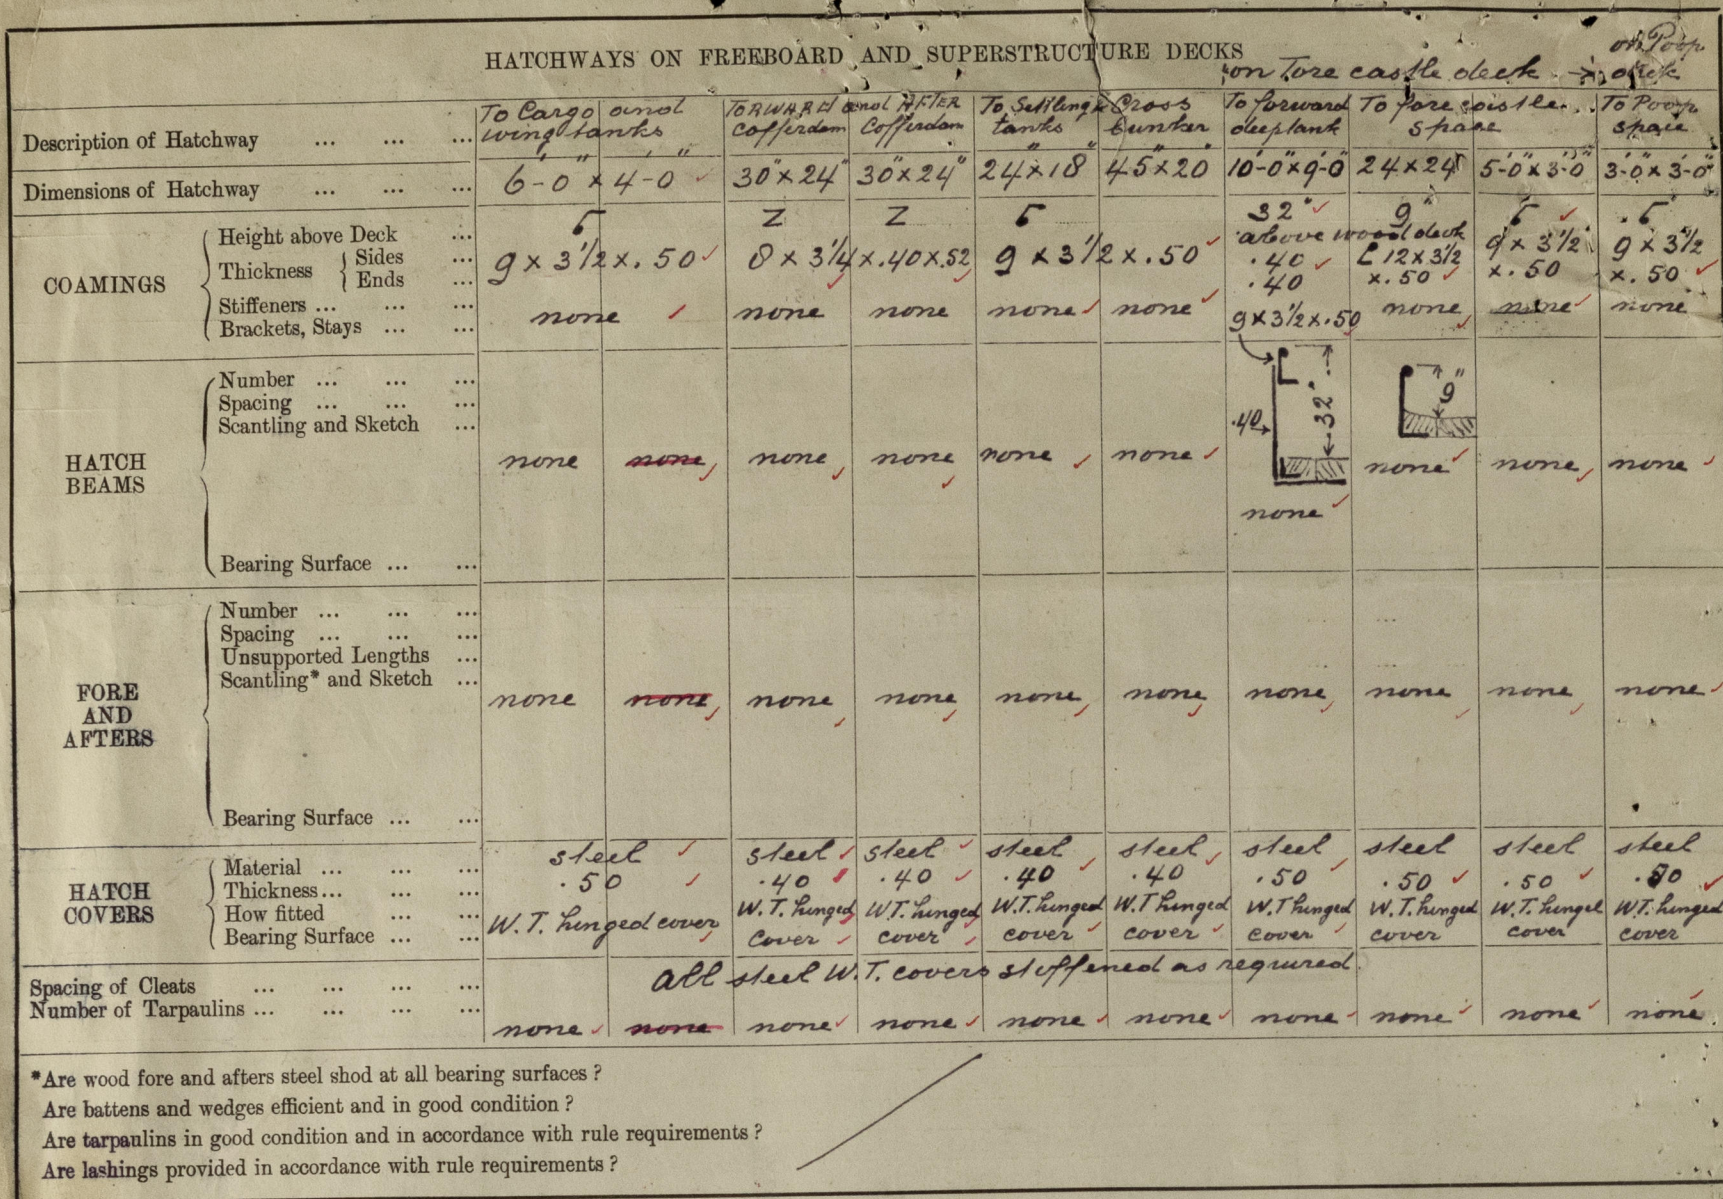 HATCHWAYS ON FREEBOARD AND SUPERSTRUCTURE DECKS
on Fore castle deck → on Poop deck
Description of Hatchway ... ... ... To Cargo and wing tanks | FORWARD and AFTER Cofferdam Cofferdam | To Settling tanks & Cross bunker | To forward deeptank | To fore castle space | To Poop space
Dimensions of Hatchway ... ... ... 6'-0" x 4'-0" ✓ | 30" x 24" | 30" x 24" | 24" x 18" | 45" x 20" | 10'-0" x 9'-0" | 24 x 24" | 5'-0" x 3'-0" | 3'-0" x 3'-0"
COAMINGS
Height above Deck ...
Thickness { Sides ...
Ends ...
9 x 3 1/2 x .50 ✓ | Z Z 8 x 3 1/4 x .40 x .52 | 9 x 3 1/2 x .50 ✓ | 32" ✓ above wood deck .40 ✓ .40 | 9" [ 12 x 3 1/2 x .50 ✓ | 9 x 3 1/2 x .50 | 9 x 3 1/2 x .50 ✓
Stiffeners ... ... ...
Brackets, Stays ... ...
none ✓ | none | none | none ✓ | none ✓ | 9 x 3 1/2 x .50 | none | none ✓ | none
HATCH BEAMS
Number ... ... ...
Spacing ... ... ...
Scantling and Sketch ...
.40 32" 9"
none | none | none | none | none ✓ | none ✓ | none ✓ | none ✓ | none | none ✓
Bearing Surface ... ...
FORE AND AFTERS
Number ... ... ...
Spacing ... ... ...
Unsupported Lengths ...
Scantling* and Sketch ...
none | none | none | none | none | none | none | none | none | none ✓
Bearing Surface ... ...
HATCH COVERS
Material ... ... ... steel ✓ | steel ✓ | steel ✓ | steel | steel | steel | steel | steel | steel
Thickness... ... ... .50 ✓ | .40 | .40 ✓ | .40 | .40 | .50 | .50 ✓ | .50 ✓ | .50 ✓
How fitted ... ... W.T. hinged cover | W.T. hinged | W.T. hinged | W.T. hinged | W.T hinged | W.T hinged | W.T. hinged | W.T. hinged | W.T. hinged
Bearing Surface ... ... cover ✓ | cover | cover ✓ | cover ✓ | cover ✓ | cover | cover | cover
all steel W.T. covers stiffened as required.
Spacing of Cleats ... ... ... ...
Number of Tarpaulins ... ... ... ... none ✓ | none | none ✓ | none ✓ | none ✓ | none ✓ | none ✓ | none ✓ | none ✓ | none ✓
*Are wood fore and afters steel shod at all bearing surfaces ?
Are battens and wedges efficient and in good condition ?
Are tarpaulins in good condition and in accordance with rule requirements ?
Are lashings provided in accordance with rule requirements ?